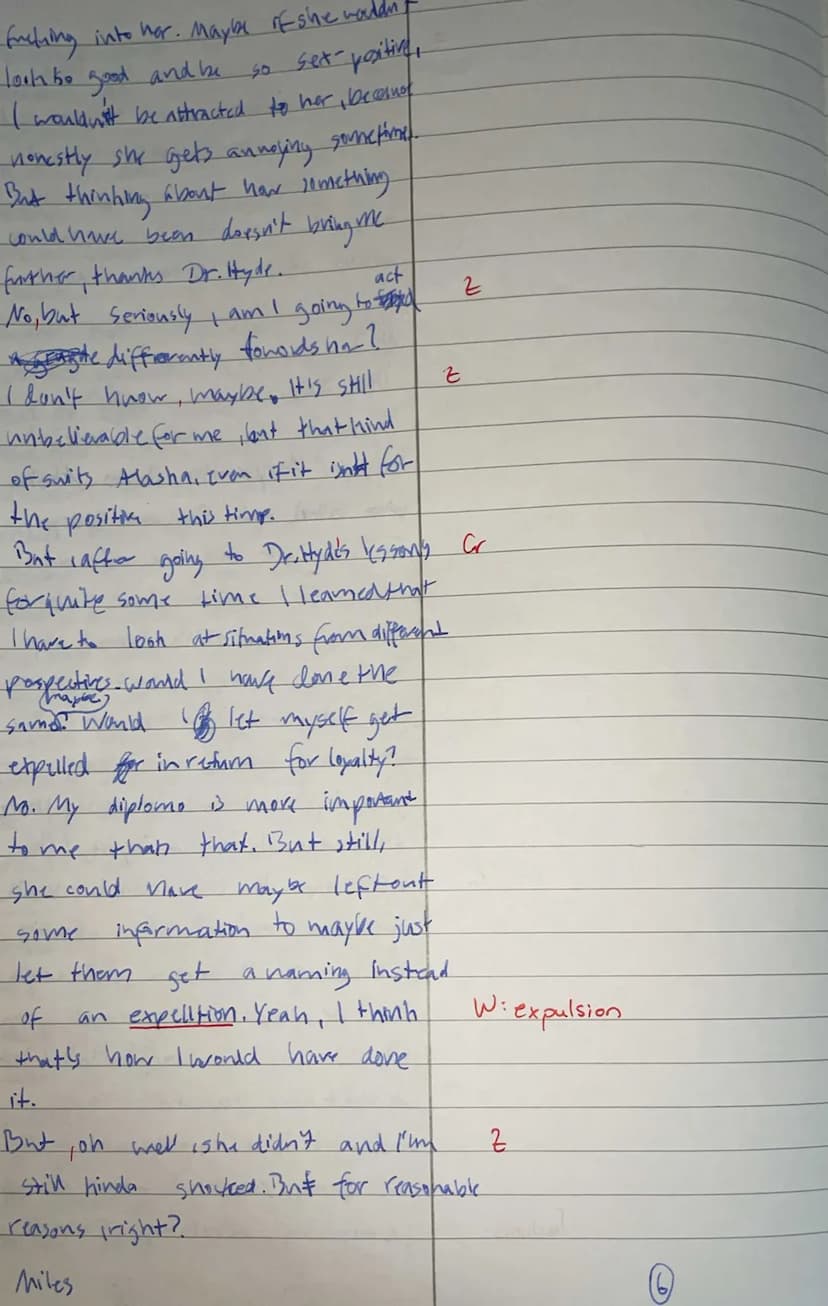 fucking into her. Maybe if she wouldn't
look so good and be so sex-positive,
I wouldn't be attracted to her, because
honestly she gets annoying sometimes.
But thinking about how something
could have been doesn't bring me
further, thanks Dr. Hyde.
act
No, but seriously, am I going to Z
differently towards her?
I don't know, maybe. It's still Z
unbelievable for me, but that kind
of suits Alasha. Even if it isn't for
the positive this time.
But, after going to Dr. Hyde's lessons Gr
for quite some time I learned that
I have to look at situations from different
perspectives. Would I have done the
(maybe)
same? Would I let myself get
expelled in return for loyalty?
No. My diploma is more important
to me than that. But still,
she could have maybe left out
some information to maybe just
let them get a warning instead
of an expelltion. Yeah, I think W: expulsion
that's how I would have done
it.
But, oh well, she didn't and I'm Z
still kinda shocked. But for reasonable
reasons, right?
Miles 6